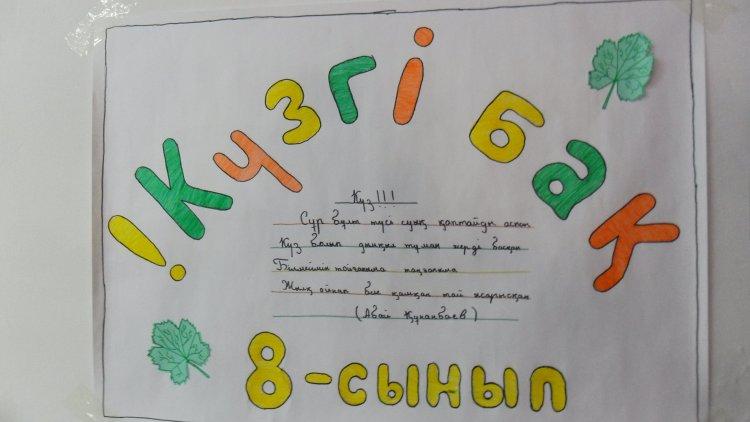 !Күзгі бақ
Күз!!!
Сұр бұлт түсі суық қаптайды аспан
Күз болып дымқыл тұман жерді басқан
Білмеймін тойғаныма тоңғаныма
ойнап бие қашқан тай жарысқан
(Абай Құнанбаев)
8-сынып